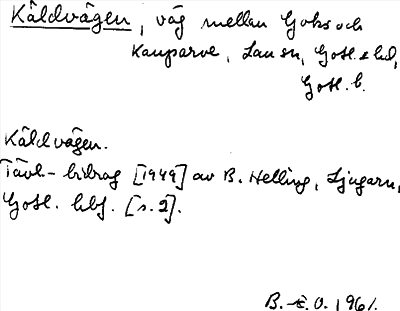 Käldvägen, väg mellan Goks och
Kauparve, Lau sn, Gotl. s hd,
Gotl. l.
Käldvägen.
Tävl-bidrag [1949] av B. Helling, Ljugarn,
Gotl. hbf. [s. 2].
B. O. 1961.